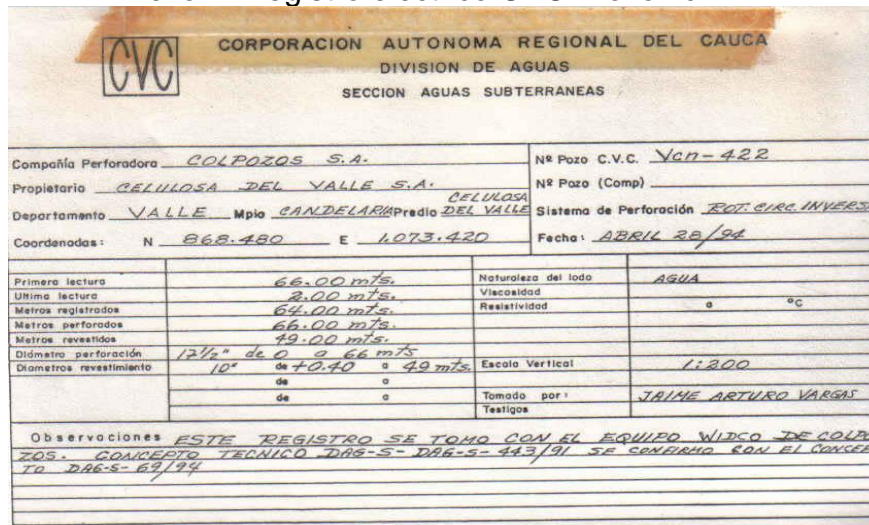 CVC
CORPORACION AUTONOMA REGIONAL DEL CAUCA
DIVISION DE AGUAS
SECCION AGUAS SUBTERRANEAS
Compañía Perforadora COLPOZOS S.A.
Nº Pozo C.V.C. Vcn-422
Propietario CELULOSA DEL VALLE S.A.
Nº Pozo (Comp)
Departamento VALLE Mpio CANDELARIA Predio CELULOSA DEL VALLE
Sistema de Perforación ROT. CIRC. INVERS
Coordenadas: N 868.480 E 1.073.420
Fecha: ABRIL 28/94
Primera lectura 66.00 mts.
Naturaleza del lodo AGUA
Ultima lectura 2.00 mts.
Viscosidad
Metros registrados 64.00 mts.
Resistividad a °C
Metros perforados 66.00 mts.
Metros revestidos 49.00 mts.
Diámetro perforación 17 1/2" de 0 a 66 mts
Diametros revestimiento 10" de +0.40 a 49 mts.
Escala Vertical 1:200
de a
de a
Tomado por: JAIME ARTURO VARGAS
Testigos
Observaciones ESTE REGISTRO SE TOMO CON EL EQUIPO WIDCO DE COLPO
ZOS. CONCEPTO TECNICO DAG-S- DAG-S-443/91 SE CONFIRMO CON EL CONCEP
TO DAG-S-69/94